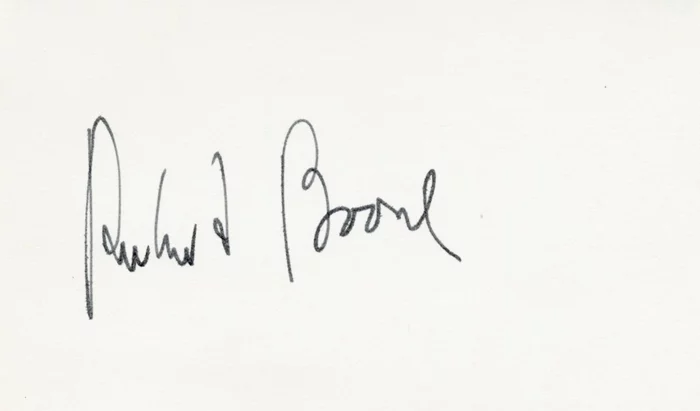 Richard Boone